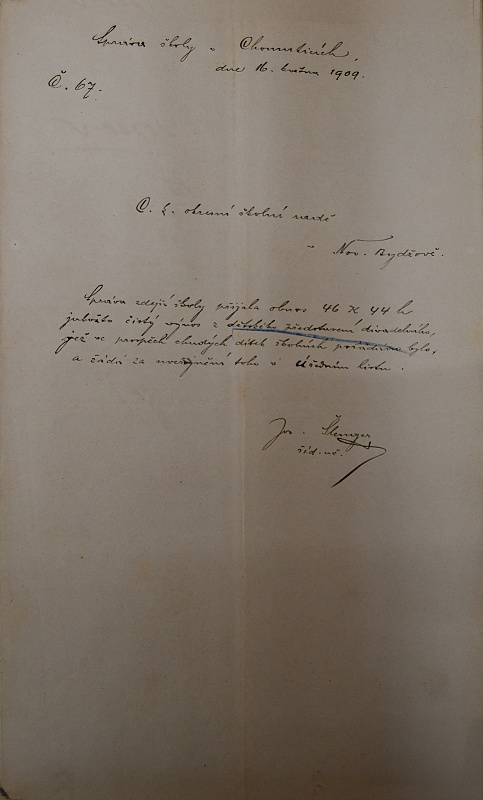 Správa školy v Chomuticích,
dne 16. května 1909.
Č. 67.
C. k. okresní školní radě
v Nov. Bydžově.
Správa zdejší školy přijala obnos 46 K 44 h
jakožto čistý výnos z dětského představení divadelního,
jež ve prospěch chudých dítek školních pořádáno bylo,
a žádá za uveřejnění toho v Úředním listu.
Jos. Šlenger
říd. uč.